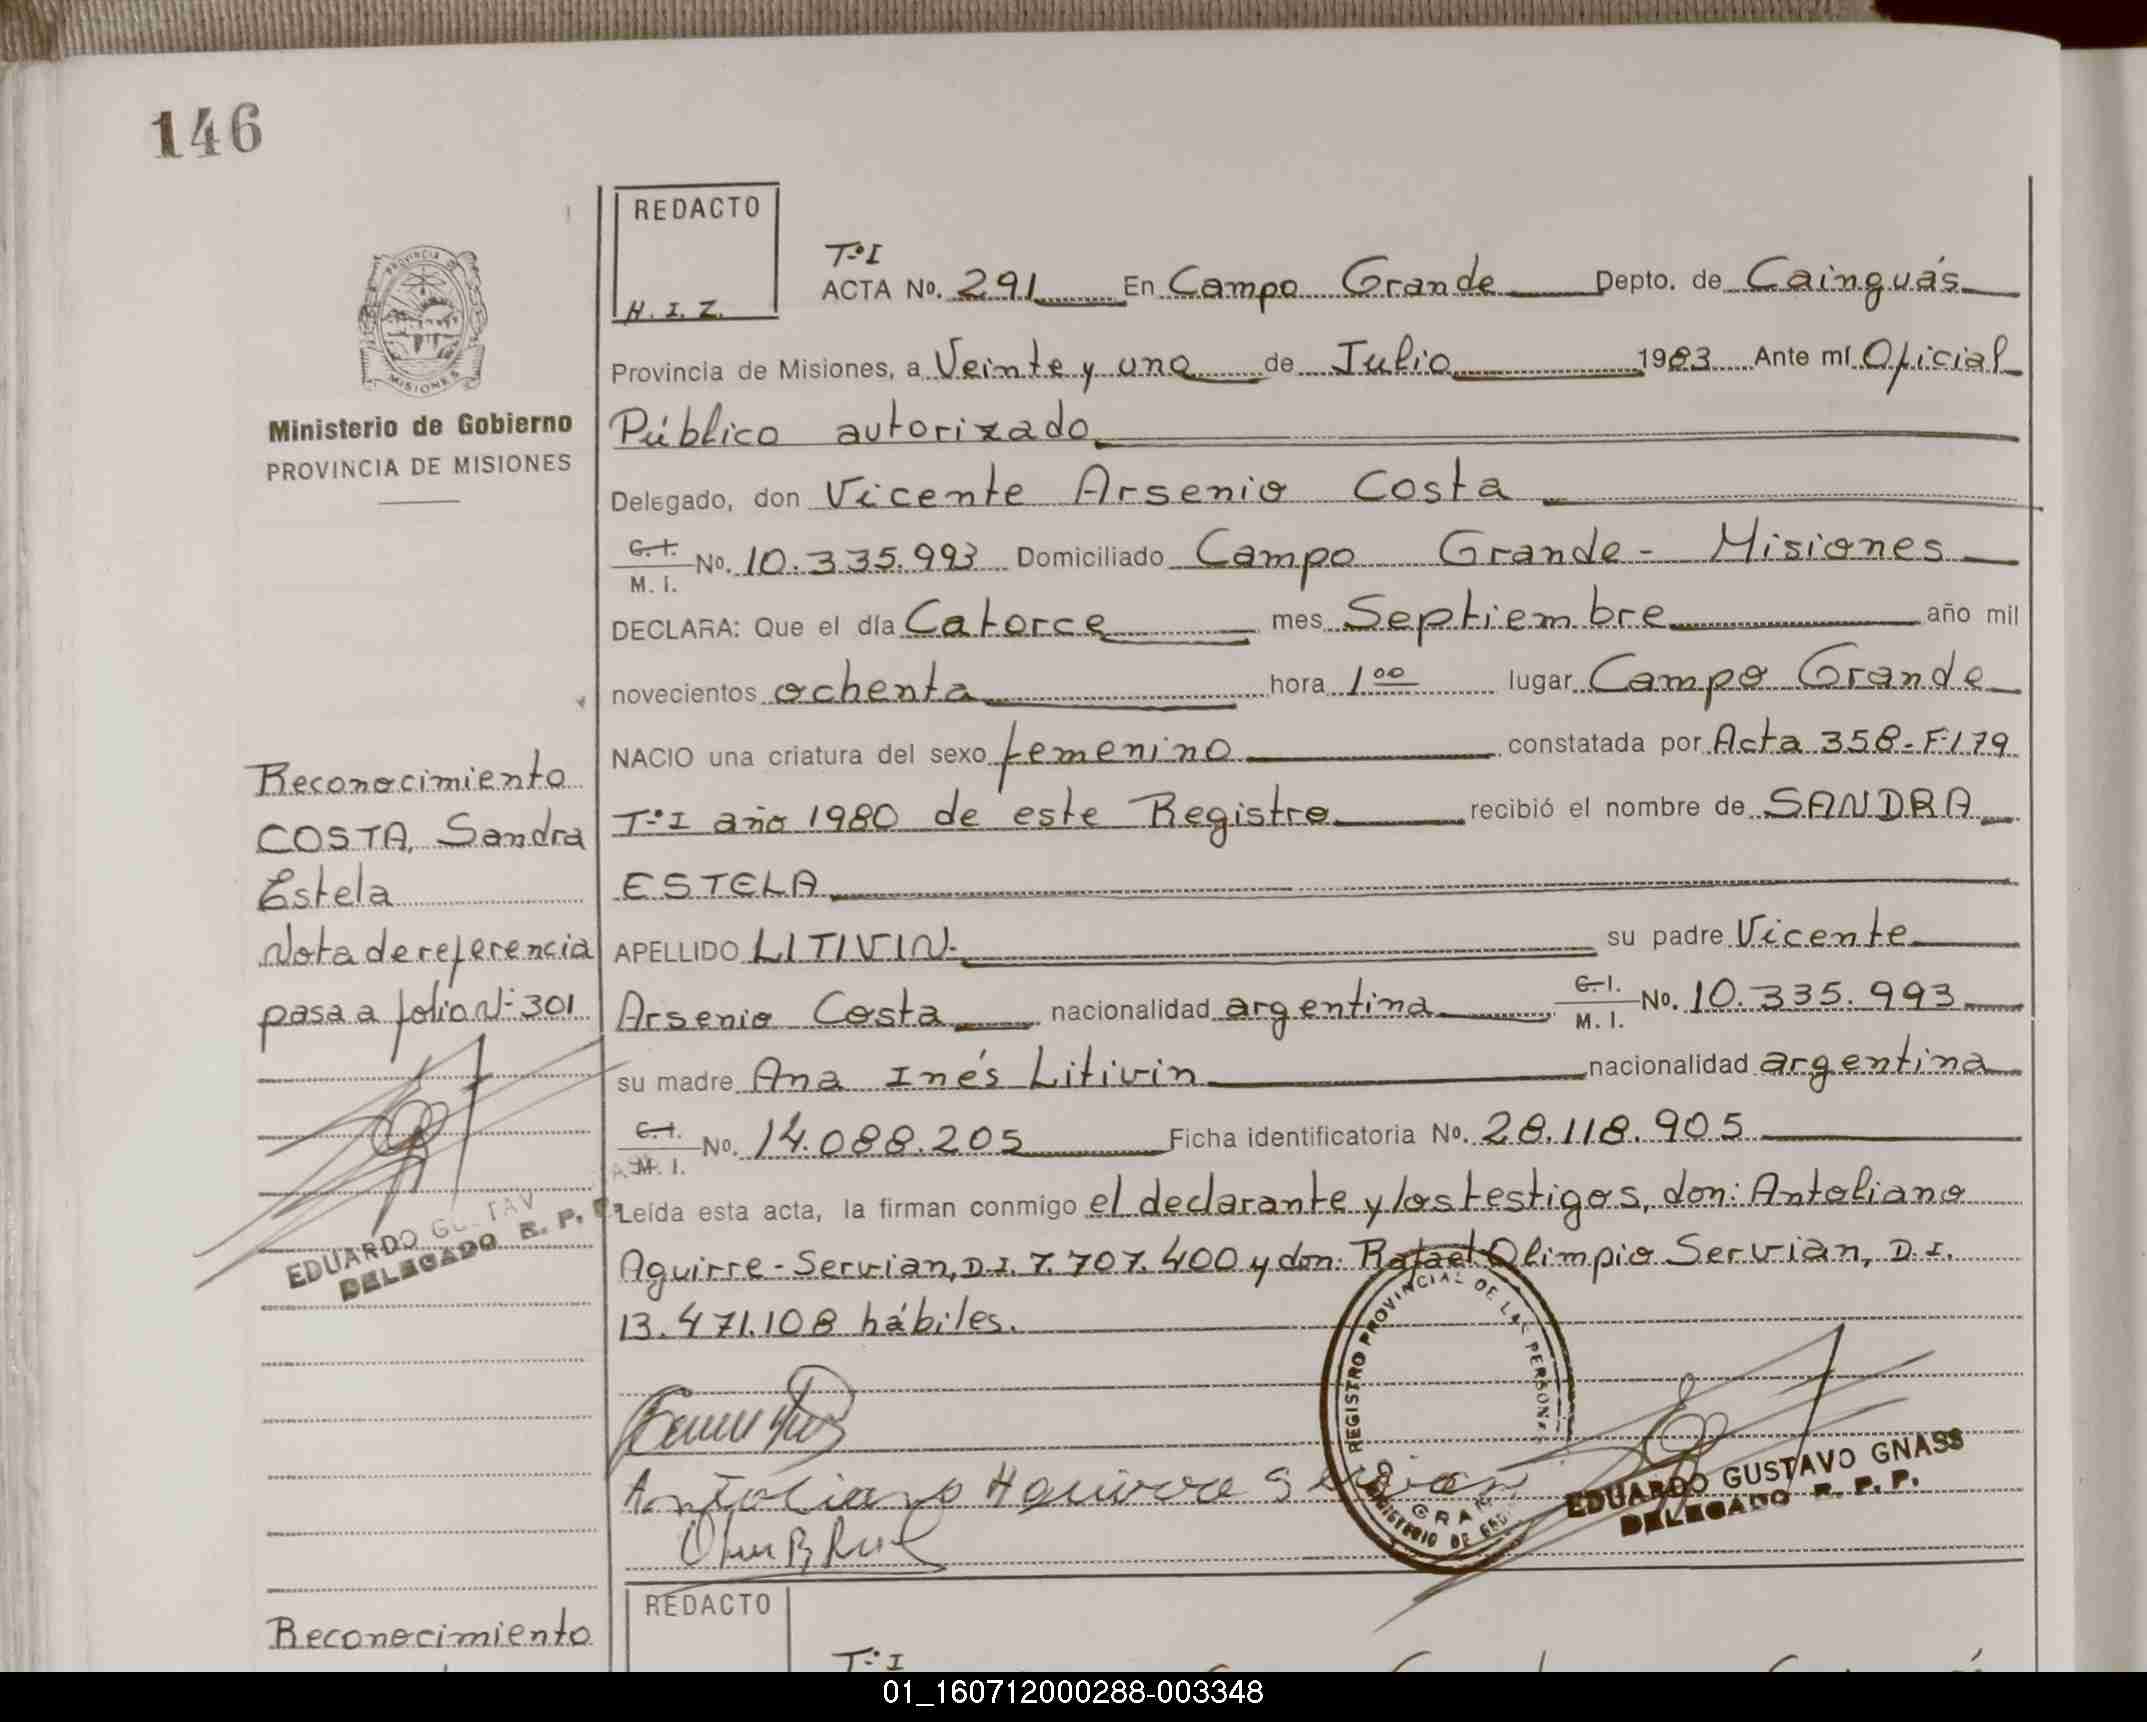 146
PROVINCIA DE
MISIONES
Ministerio de Gobierno
PROVINCIA DE MISIONES
REDACTO
H. I. Z.
T.º I
ACTA Nº. 291 En Campo Grande Depto. de Cainguás
Provincia de Misiones, a Veinte y uno de Julio 1983 Ante mí Oficial
Público autorizado
Delegado, don Vicente Arsenio Costa
C. I.
M. I. Nº. 10.335.993 Domiciliado Campo Grande - Misiones
DECLARA: Que el día Catorce mes Septiembre año mil
novecientos ochenta hora 1 00 lugar Campo Grande
NACIO una criatura del sexo femenino constatada por Acta 358-Fº179
T.º I año 1980 de este Registro recibió el nombre de SANDRA
ESTELA
APELLIDO LITIVIN. su padre Vicente
Arsenio Costa nacionalidad argentina C. I. M. I. Nº. 10.335.993
su madre Ana Inés Litivin nacionalidad argentina
C. I.
M. I. Nº. 14.088.205 Ficha identificatoria Nº. 28.118.905
Leída esta acta, la firman conmigo el declarante y los testigos, don: Antoliano
Aguirre - Servian, D.I. 7.707.400 y don: Rafael Olimpio Servian, D.I.
13.471.108 hábiles.
Reconocimiento
COSTA, Sandra
Estela
Nota de referencia
pasa a folio Nº 301
EDUARDO GUSTAV
DELEGADO R. P.
Antoliano Aguirre Servian
REGISTRO PROVINCIAL DE LAS PERSONAS
GRAN
MINISTERIO DE GOB
EDUARDO GUSTAVO GNASS
DELEGADO R. P. P.
REDACTO
Reconocimiento
T.º I
01_160712000288-003348